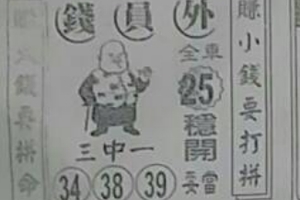 賺大錢要拼命
錢員外
全車
25
穩開
要當
三中一
34 38 39
賺小錢要打拼